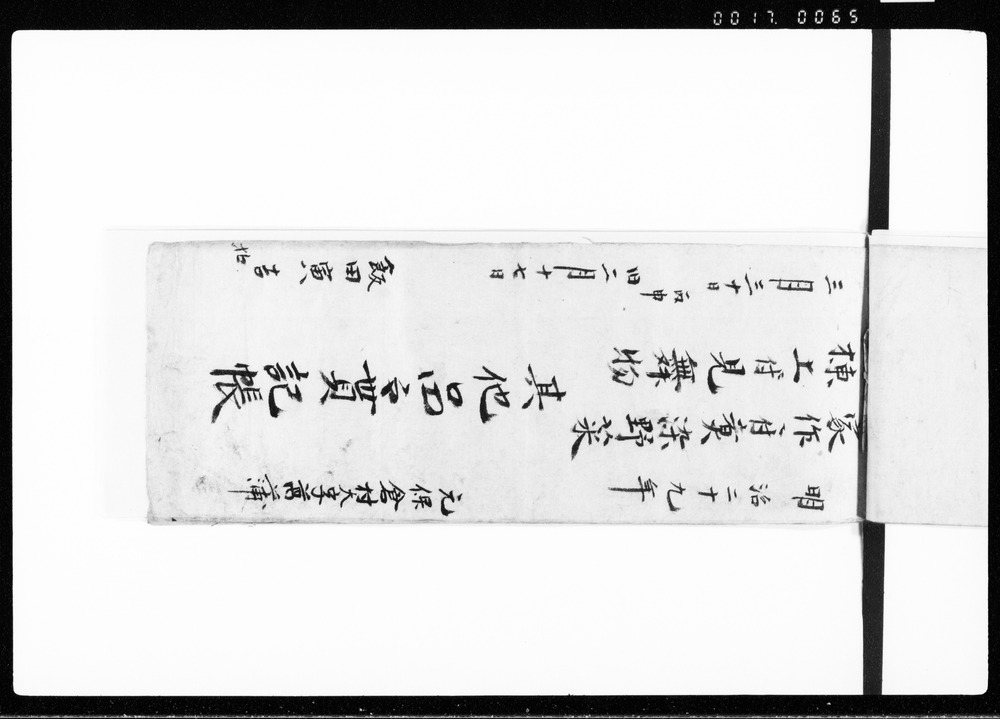 0017. 0065
明治二十九年
家作ニ付 野菜
棟上ニ付見舞物
三月三十日 丙申
旧二月十七日
其他品々貰記帳
元保倉村大字菖蒲
飯田寅吉
扣